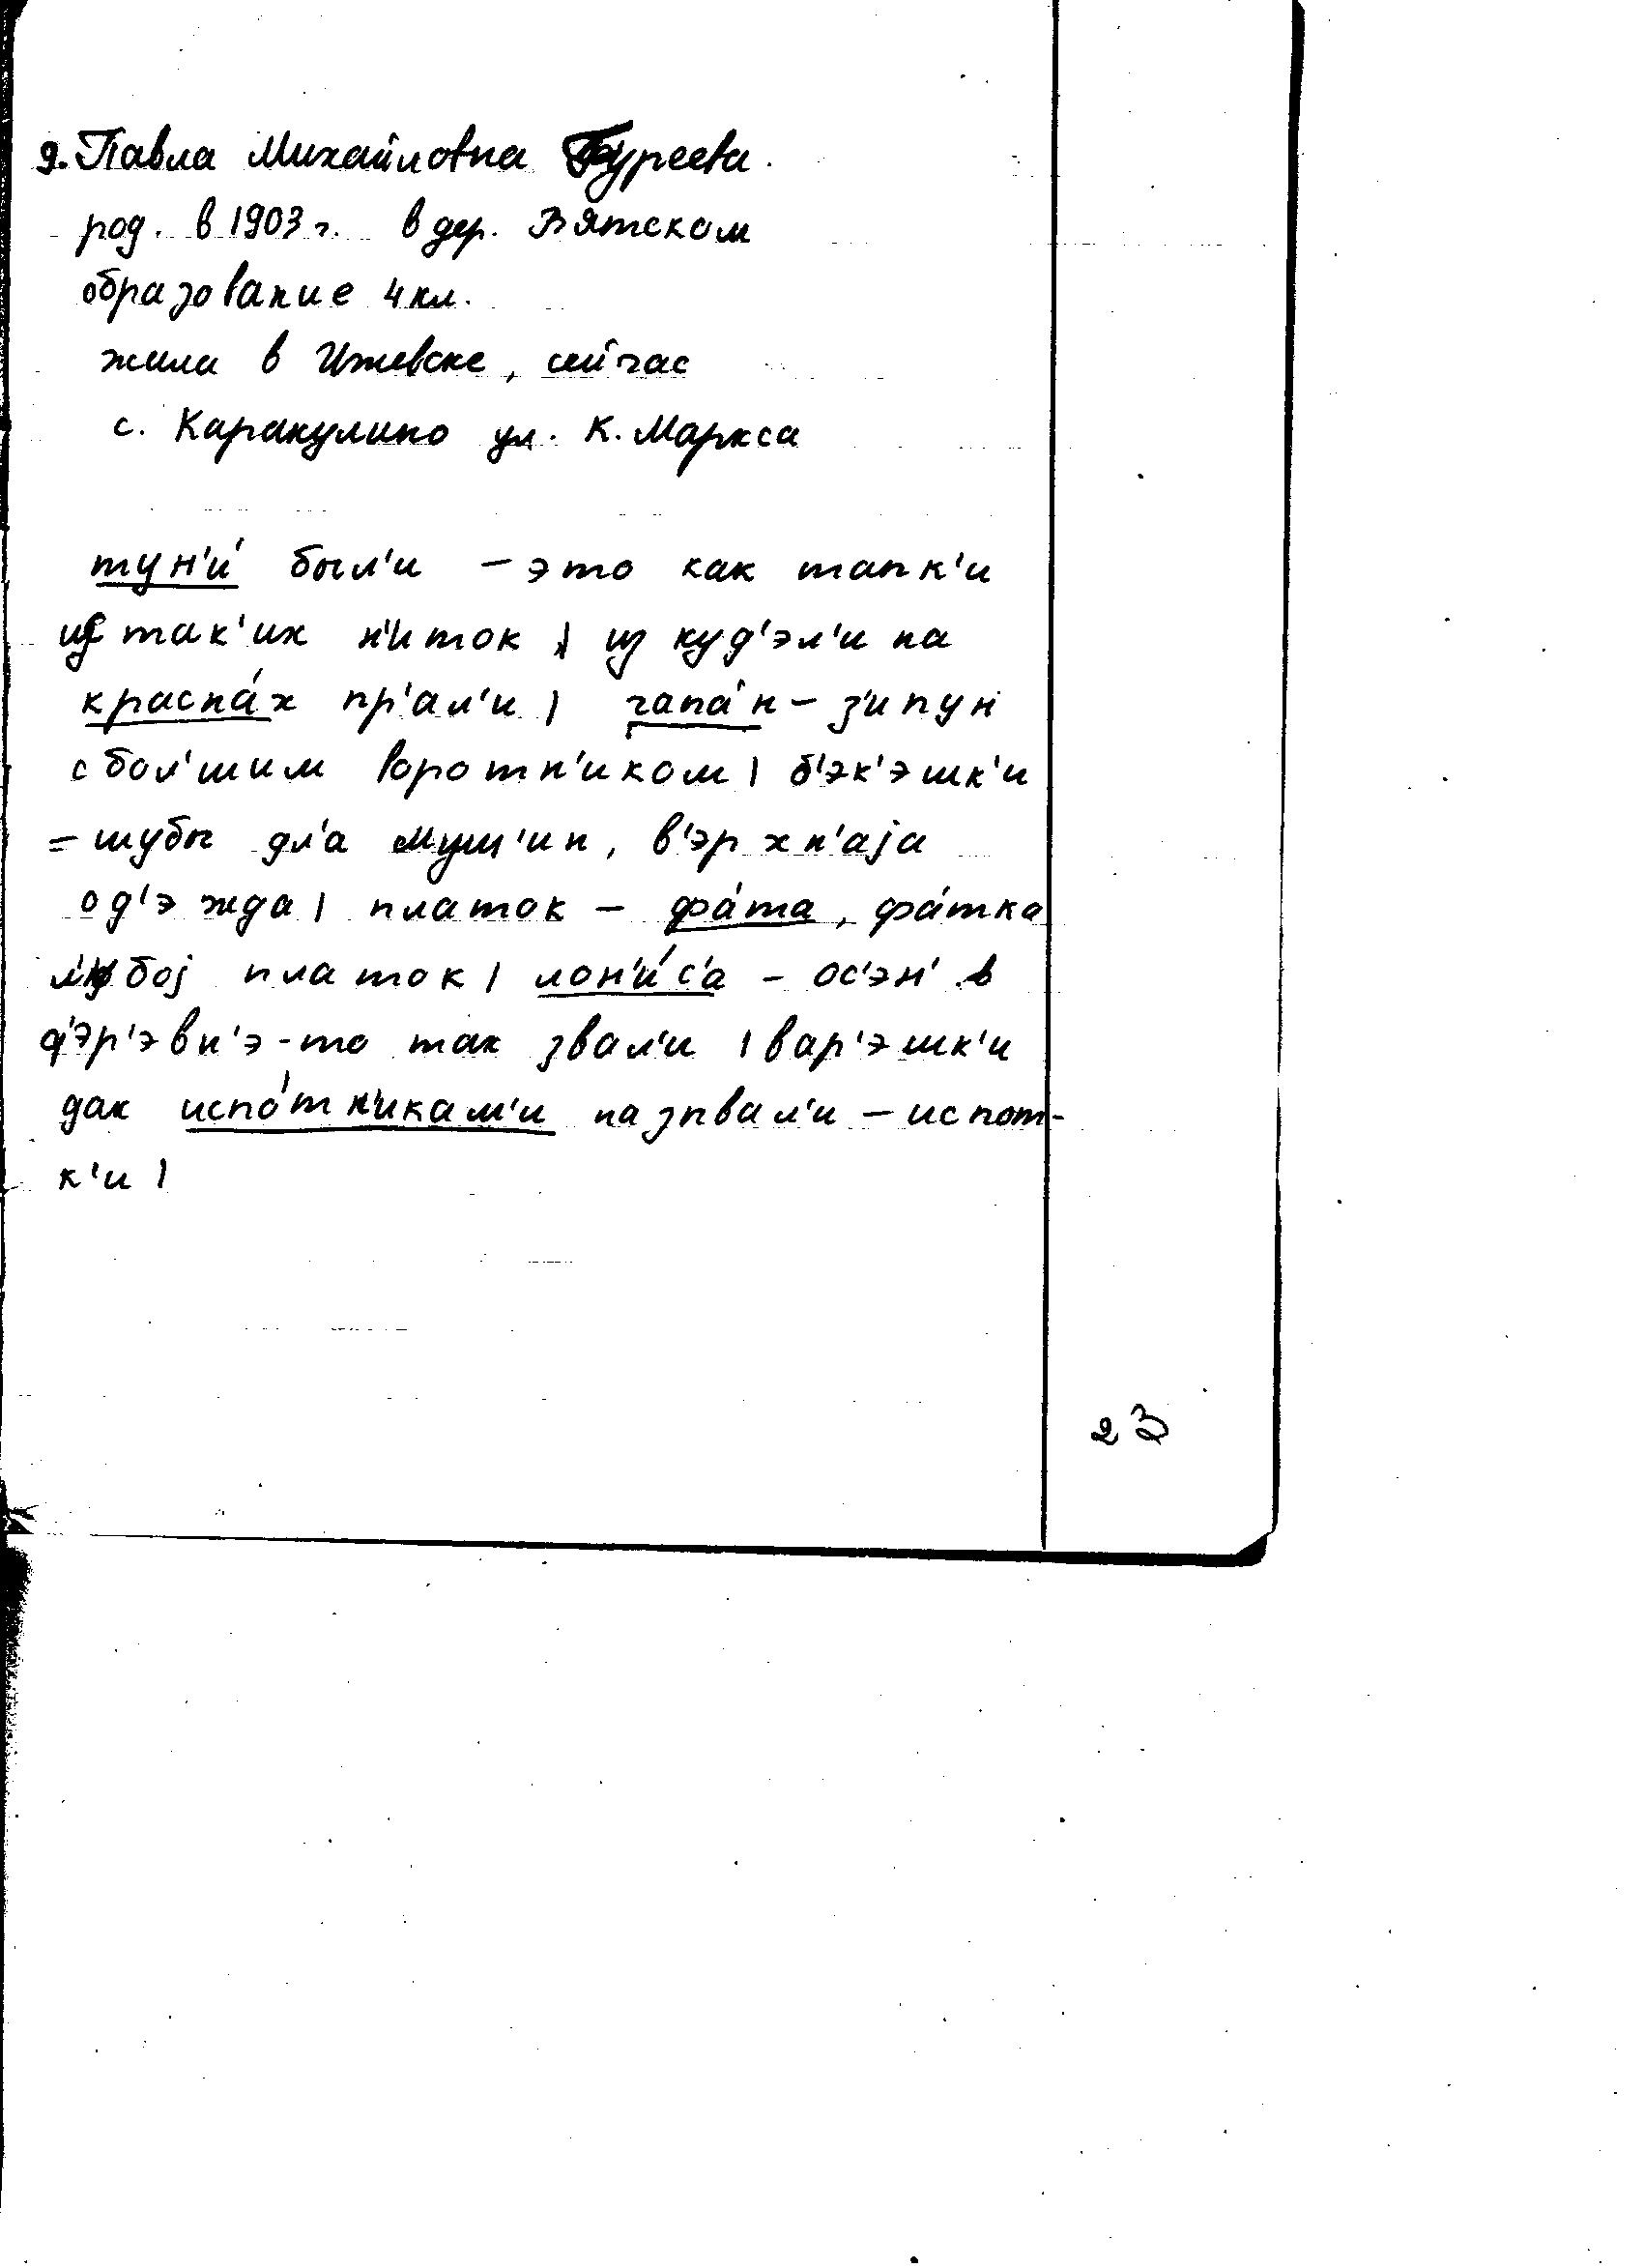 9. Павла Михайловна Гуреева.
род. в 1903 г. в дер. Вятском
образование 4 кл.
жила в Ижевске, сейчас
с. Каракулино ул. К. Маркса
тун'и́ был'и – это как тапк'и
из так'их н'иток | из куд'эл'и на
красна́х пр'ал'и | чапа́н – з'ипун
с бол'шим воротн'иком | б'эк'эшк'и
– шубы дл'а мущ'ин, в'эрхн'аjа
од'эжда | платок – фа́та, фа́тка
л'убоj платок | лон'и́с'а – ос'эн' в
д'эр'эвн'э-то так звал'и | вар'эшк'и
дак испо́тн'икам'и назывaл'и – испот-
к'и |
23